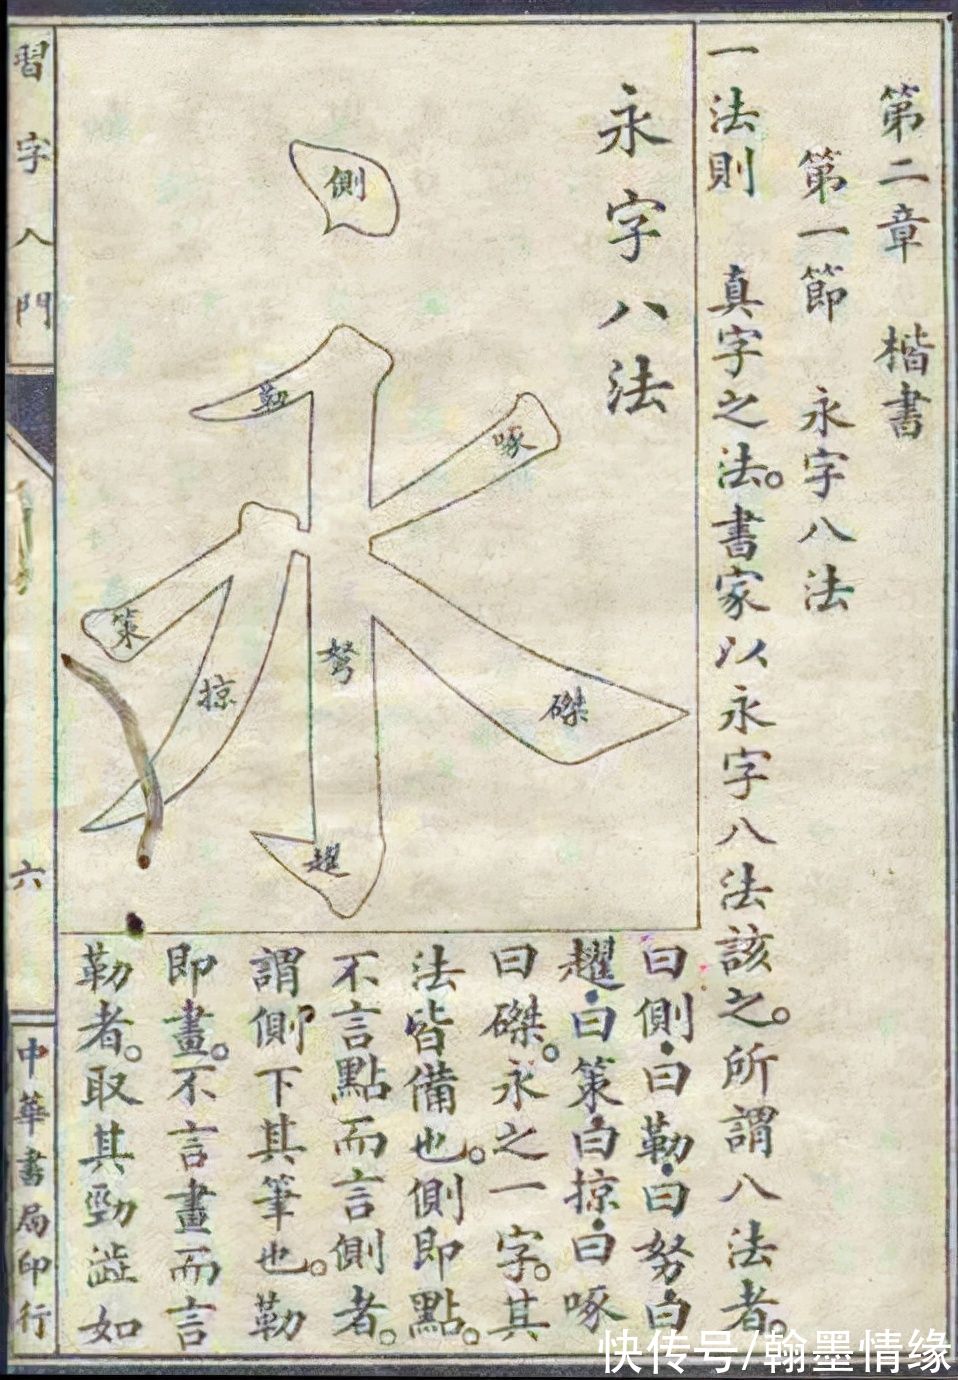 第二章　楷書
第一節　永字八法
一法則　真字之法。書家以永字八法該之。所謂八法者。
永字八法
側
勒
啄
策
掠
努
磔
趯
曰側。曰勒。曰努。曰
趯。曰策。曰掠。曰啄
曰磔。永之一字。其
法皆備也。側即點。
不言點而言側者。
謂側下其筆也。勒
即畫。不言畫而言
勒者。取其勁澁如
習字入門
六
中華書局印行
快传号/翰墨情缘